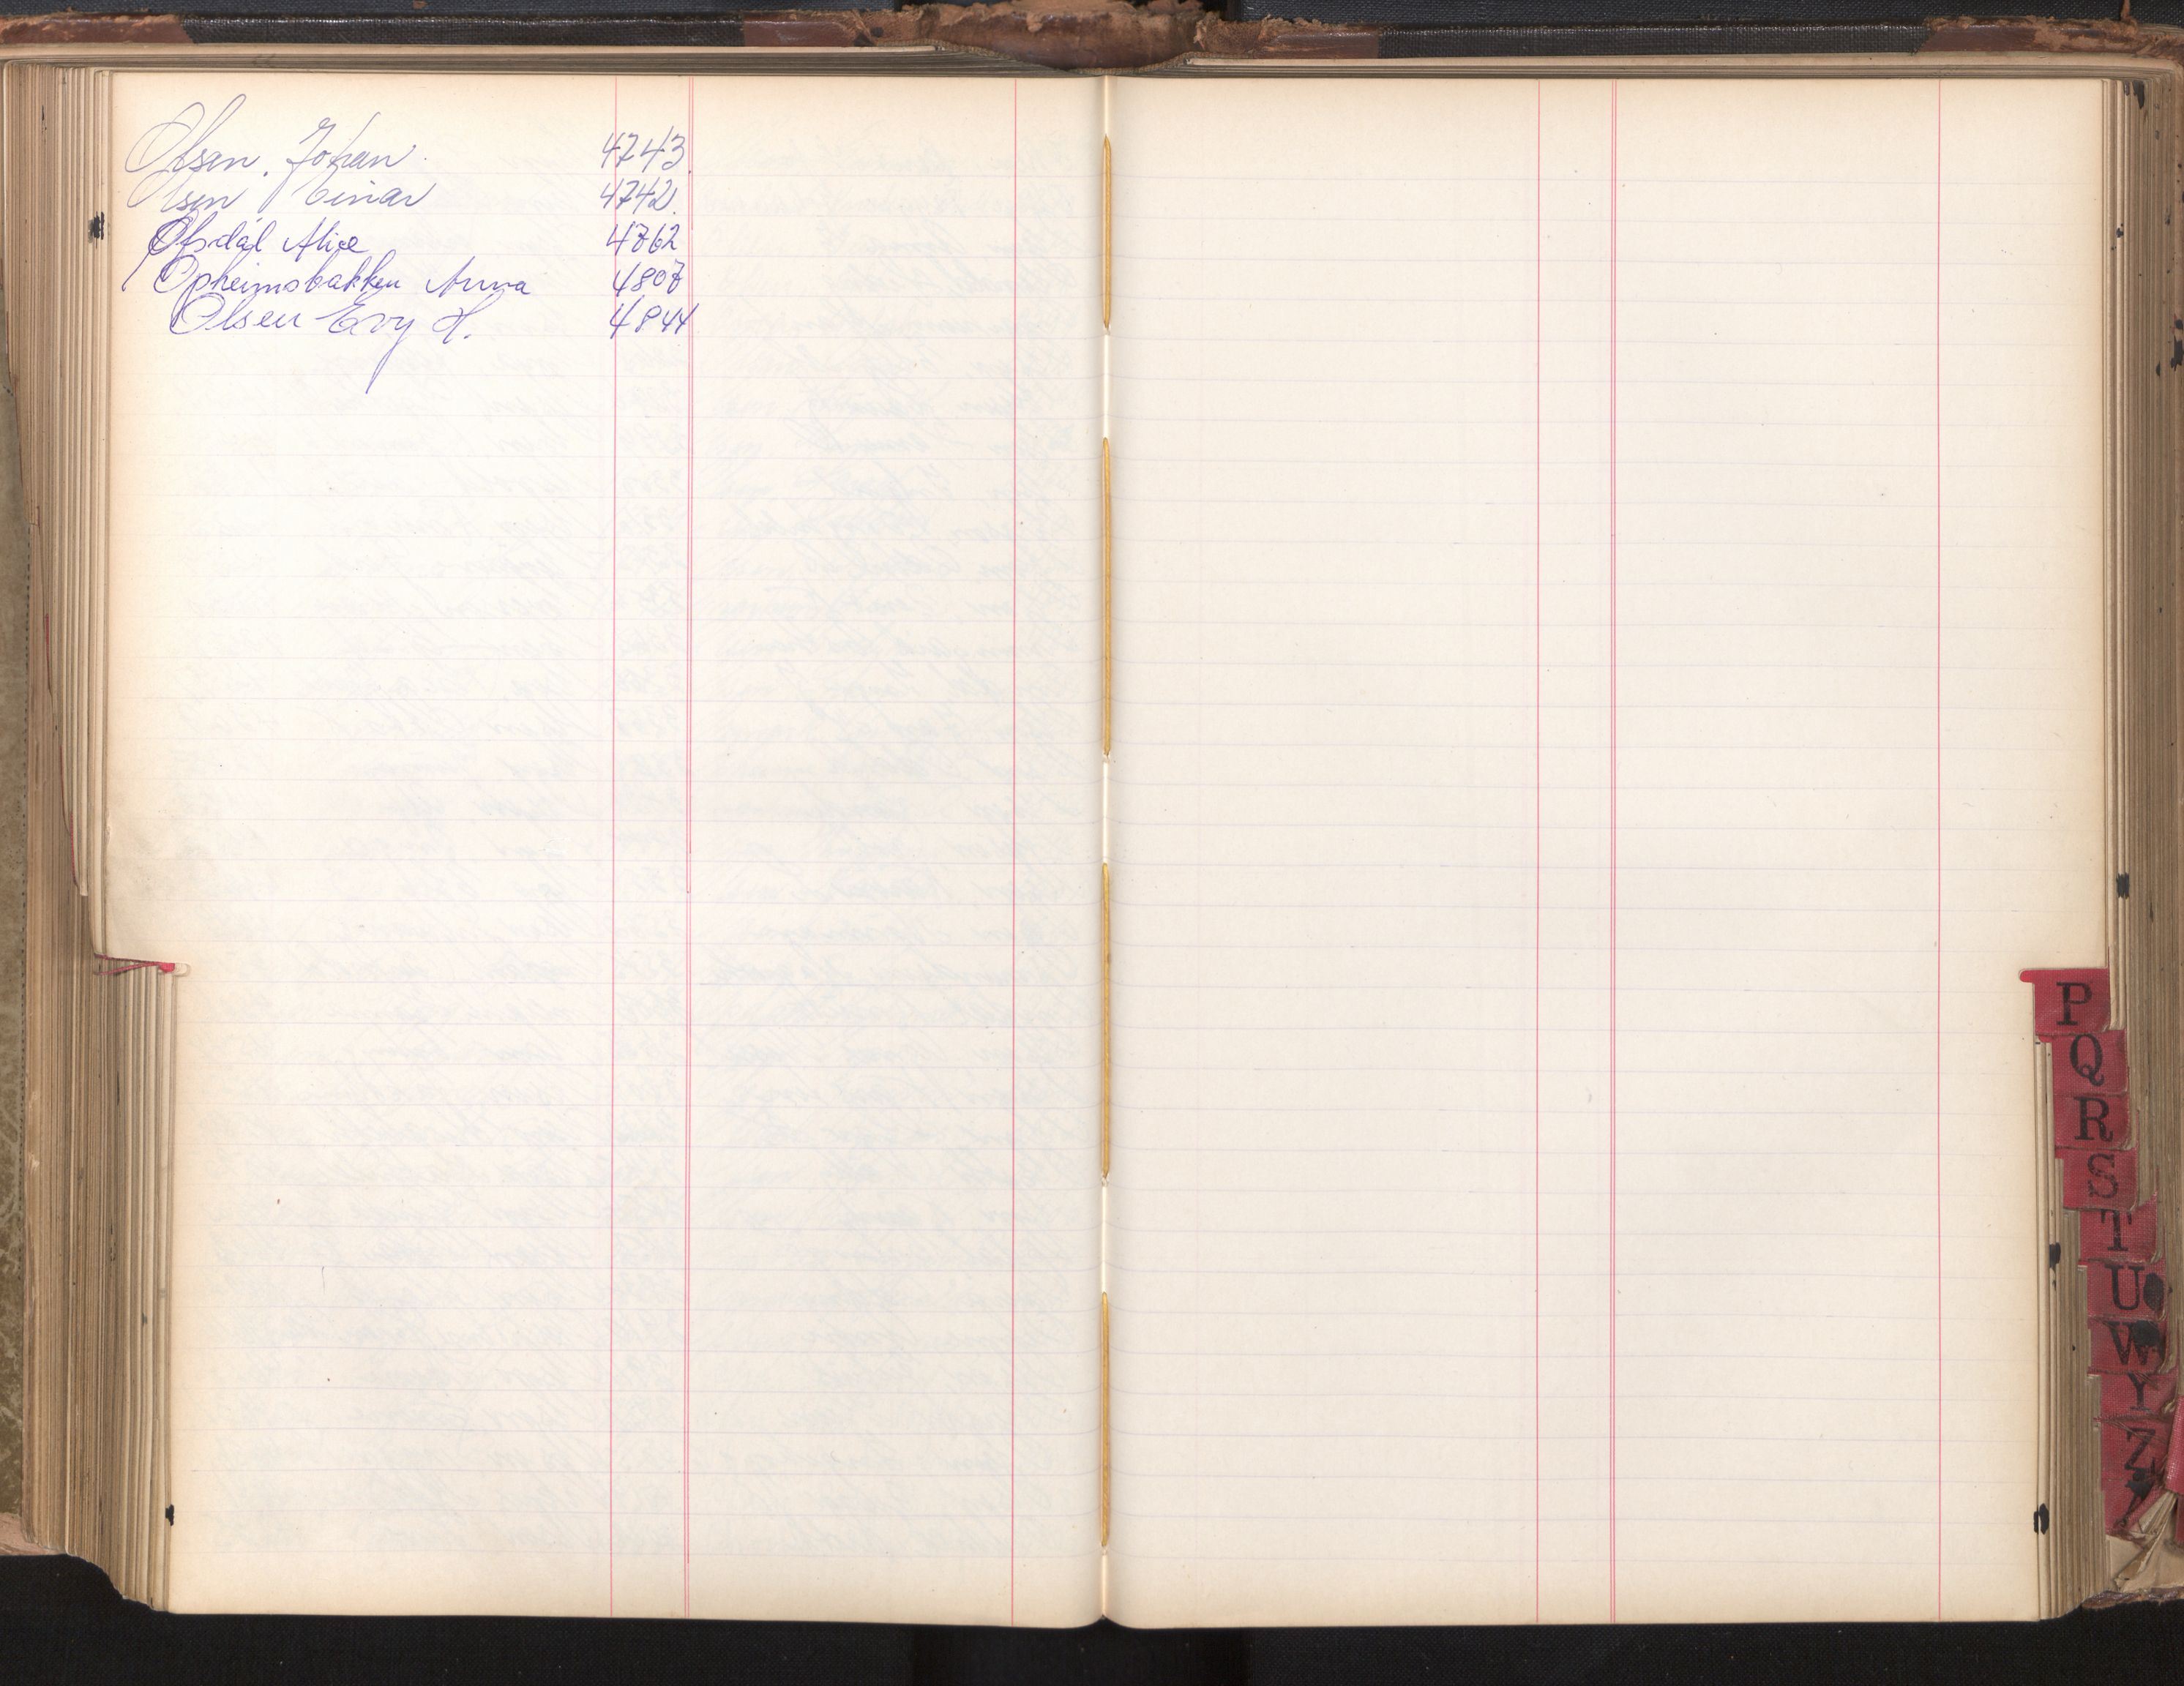 Olsen, Johan 4743
Olsen Einar 4742.
Ofsdal Alice 4762
Opheimsbakken Anna 4807
Olsen Evy H. 4844
P
Q
R
S
T
U
W
Y
Z